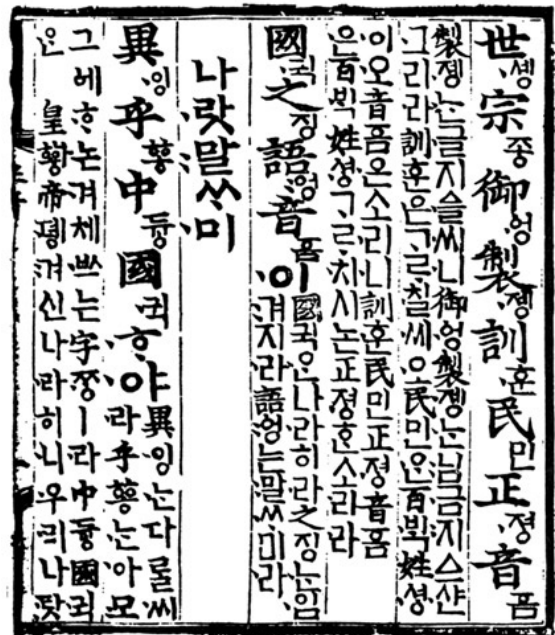 世솅宗종御ᅌᅥᆼ製졩訓훈民민正졍音ᅙᅳᆷ
製졩는글지ᅀᅳᆯ씨니御ᅌᅥᆼ製졩는님금지ᅀᅳ샨
그리라訓훈은ᄀᆞᄅᆞ칠씨오民민ᄋᆞᆫ百ᄇᆡᆨ姓셩
이오音ᅙᅳᆷ은소리니訓훈民민正졍音ᅙᅳᆷ
은百ᄇᆡᆨ姓셩ᄀᆞᄅᆞ치시논正졍ᄒᆞᆫ소리라
國귁之징語ᅌᅥᆼ音ᅙᅳᆷ이
國귁ᄋᆞᆫ나라히라之징ᄂᆞᆫ입
겨지라語ᅌᅥᆼ는말ᄊᆞ미라
나랏말ᄊᆞ미
異잉乎ᅘᅩᆼ中듕國귁ᄒᆞ야
異잉ᄂᆞᆫ다ᄅᆞᆯ씨
라乎ᅘᅩᆼᄂᆞᆫ아모
그ᅌᅦᄒᆞ논겨체ᄡᅳ는字ᄍᆞᆼㅣ라中듕國귁
ᄋᆞᆫ皇ᅘᅪᆼ帝뎽겨신나라히니우리나랏